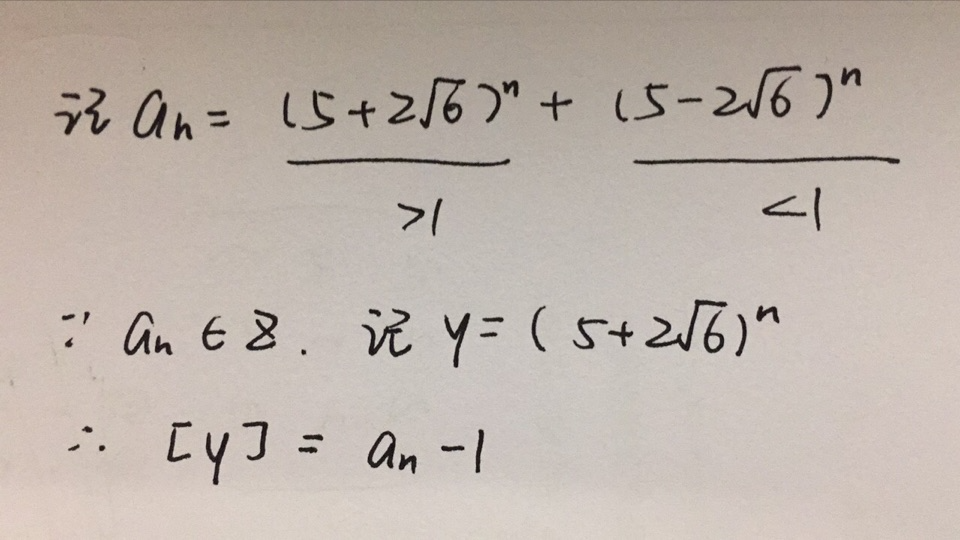 记 aₙ = (5+2√6)ⁿ + (5-2√6)ⁿ
>1 <1
∵ aₙ ∈ Z. 记 y = (5+2√6)ⁿ
∴ [y] = aₙ -1